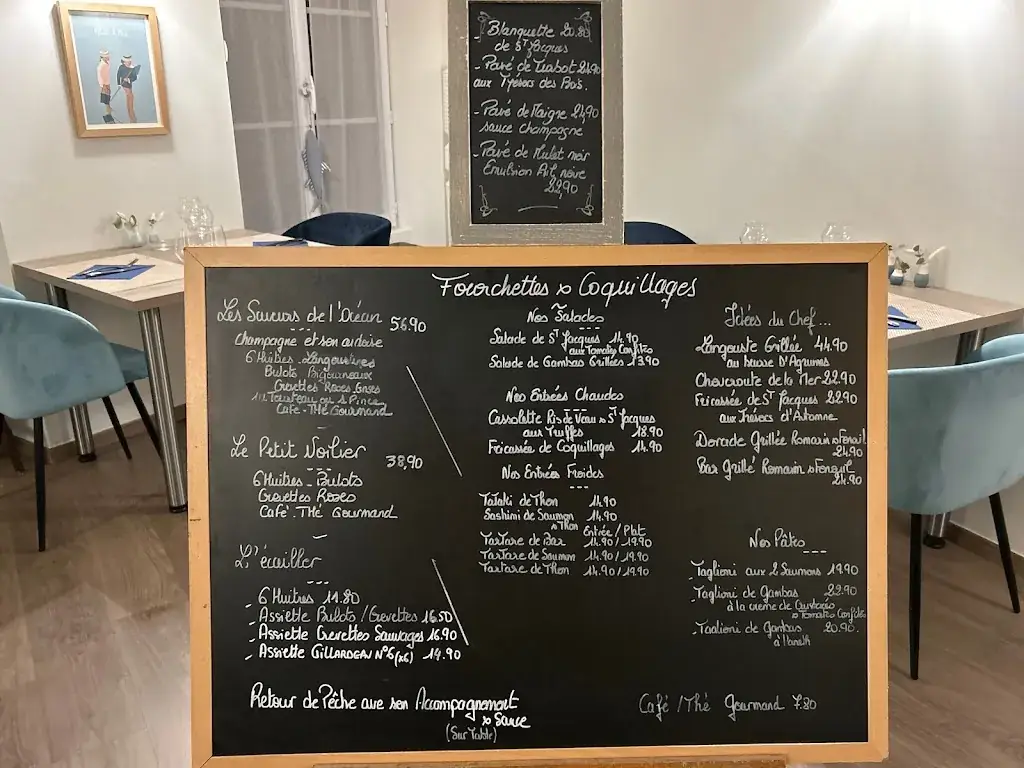 - Blanquette 20.80
de St Jacques
- Pavé de Turbot 24.90
aux Trésors des Bois.
- Pavé de Maigre 24,90
sauce champagne
- Pavé de Mulet noir
Emulsion Ail noire
22,90
Fourchettes & Coquillages
Les Saveurs de l'Océan 56.90
Champagne et son
6 Huîtres Langoustines
Bulots Bigorneaux
Crevettes Roses Grises
1/2 Tourteau ou s Pince
Café-Thé Gourmand
Le Petit Voilier 38,90
6 Huîtres - Bulots
Crevettes Roses
Café-Thé Gourmand
L'écailler
6 Huitres 11.80
- Assiette Bulots / Crevettes 16.50
- Assiette Crevettes Sauvages 16.90
- Assiette GILLARDEAU N°5 (x6) 19.90
Retour de Pêche avec son Accompagnement
& Sauce
(Sur Table)
Nos Salades
Salade de St Jacques 14.90
aux Tomates Confites
Salade de Gambas Grillées 13.90
Nos Entrées Chaudes
Cassolette Ris de Veau & St Jacques
aux Truffes 18.90
Fricassée de Coquillages 14.90
Nos Entrées Froides
Tataki de Thon 14.90
Sashimi de Saumon 14.90
& Thon Entrée / Plat
Tartare de Bar 14.90 / 19.90
Tartare de Saumon 14.90 / 19.90
Tartare de Thon 14.90 / 19.90
Idées du Chef...
Langouste Grillée 44.90
au beurre D'Agrumes
Choucroute de la Mer 22.90
Fricassée de St Jacques 22.90
aux Trésors d'Automne
Dorade Grillée Romarin & Fenouil
24.90
Bar Grillé Romarin & Fenouil
24.90
Nos Pâtes
- Taglioni aux 2 Saumons 19.90
- Taglioni de Gambas 22.90
à la crème de Crustacés
& Tomates Confites
- Taglioni de Gambas 20.90.
à l'aneth
Café / Thé Gourmand 7.80